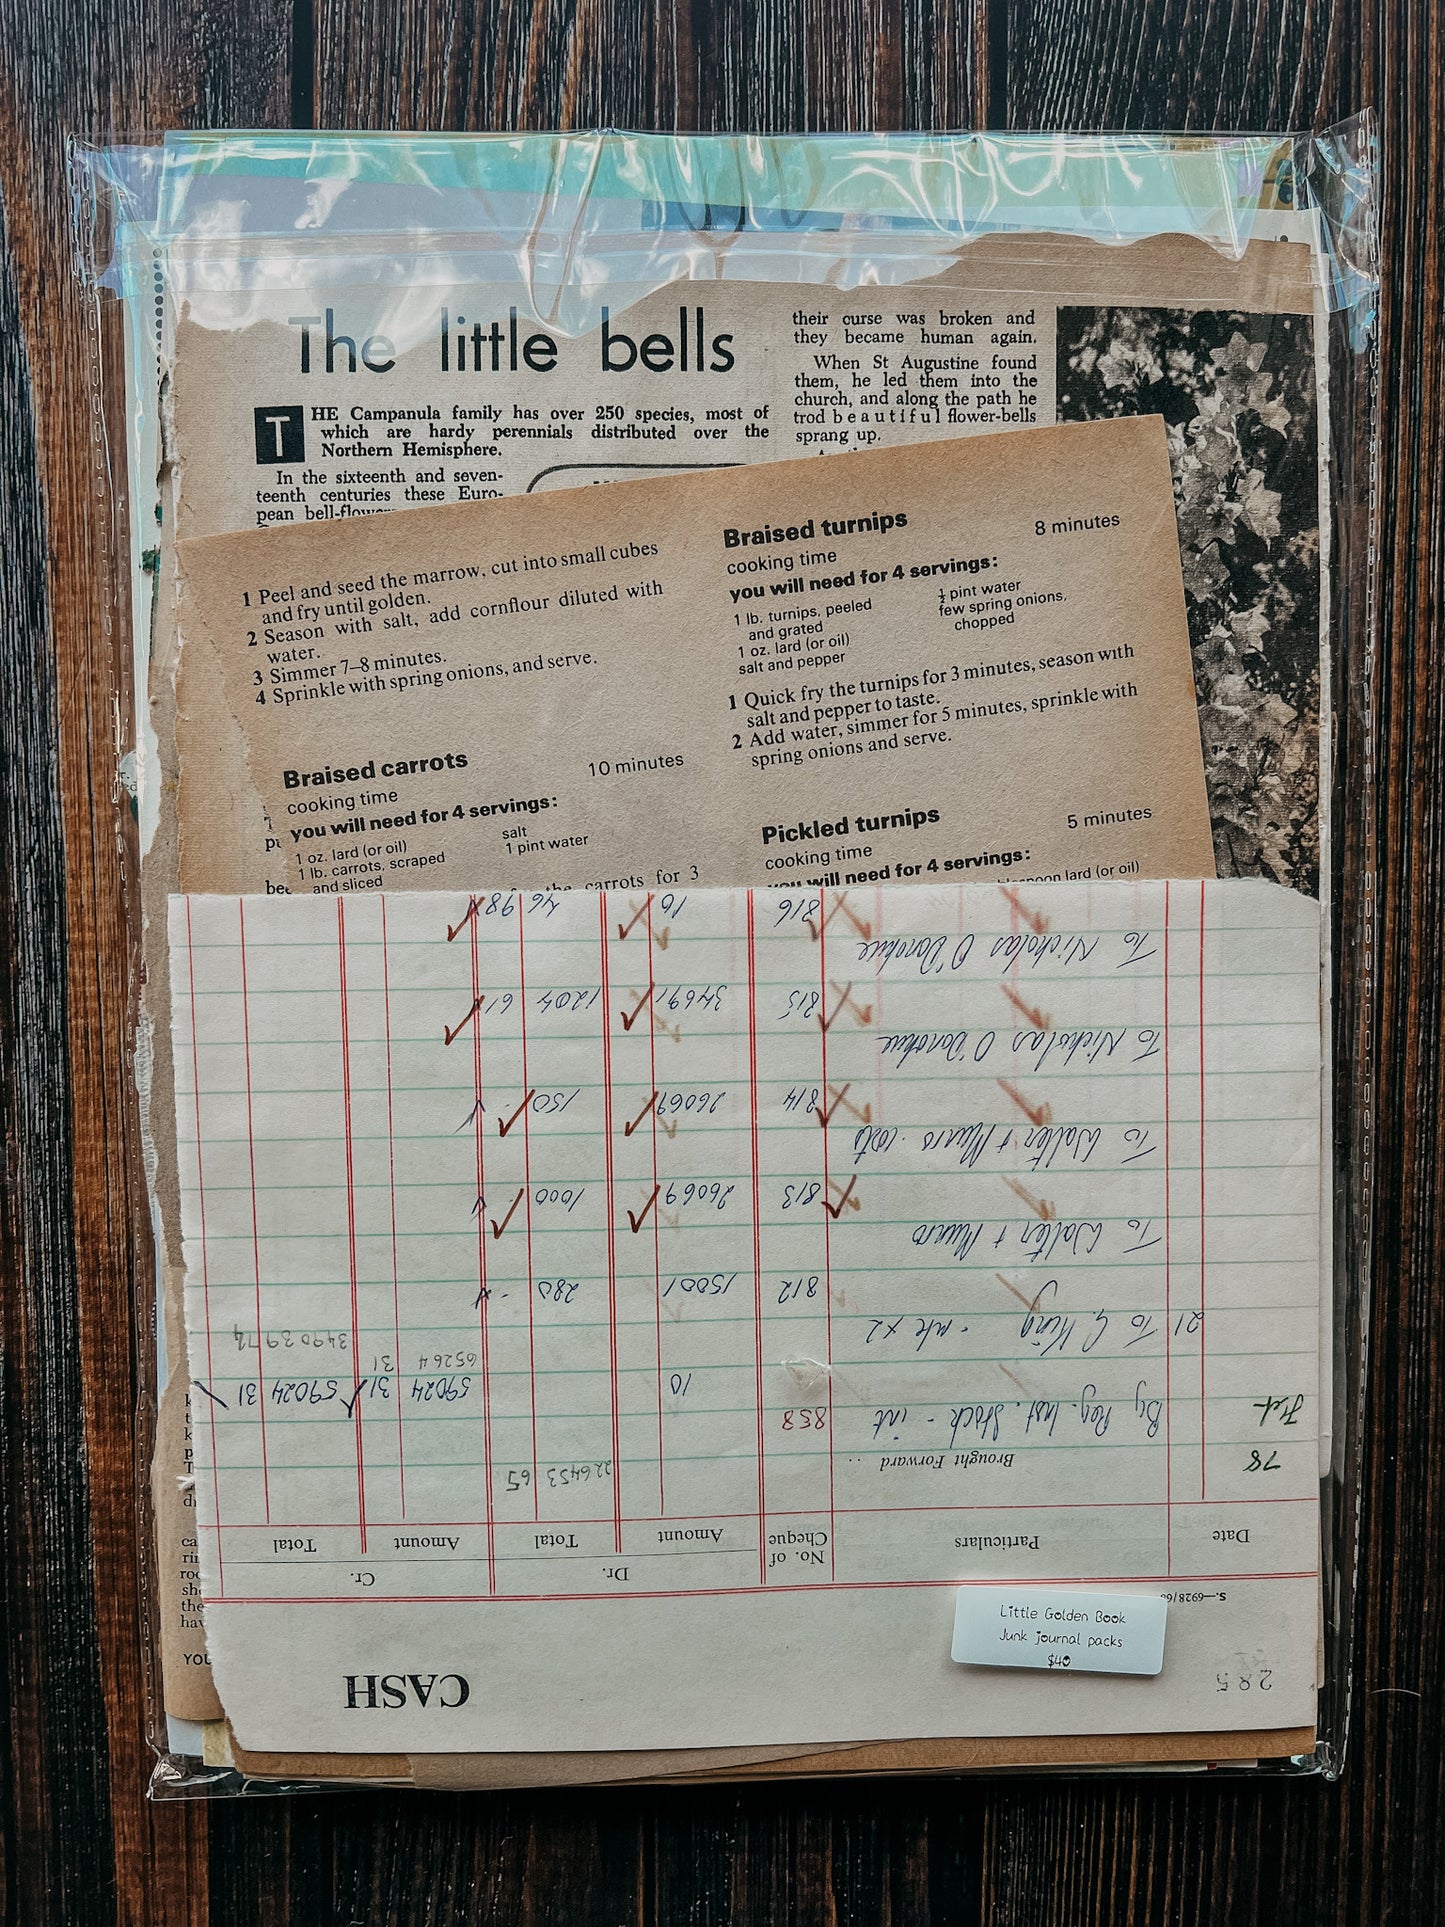 The little bells
THE Campanula family has over 250 species, most of
which are hardy perennials distributed over the
Northern Hemisphere.
In the sixteenth and seven-
teenth centuries these Euro-
pean bell-flower
their curse was broken and
they became human again.
When St Augustine found
them, he led them into the
church, and along the path he
trod beautiful flower-bells
sprang up.
1 Peel and seed the marrow, cut into small cubes
and fry until golden.
2 Season with salt, add cornflour diluted with
water.
3 Simmer 7–8 minutes.
4 Sprinkle with spring onions, and serve.
Braised carrots
cooking time 10 minutes
you will need for 4 servings:
1 oz. lard (or oil)
1 lb. carrots, scraped
and sliced
salt
1 pint water
the carrots for 3
Braised turnips
cooking time 8 minutes
you will need for 4 servings:
1 lb. turnips, peeled
and grated
1 oz. lard (or oil)
salt and pepper
½ pint water
few spring onions,
chopped
1 Quick fry the turnips for 3 minutes, season with
salt and pepper to taste.
2 Add water, simmer for 5 minutes, sprinkle with
spring onions and serve.
Pickled turnips
cooking time 5 minutes
you will need for 4 servings:
lard (or oil)
285
CASH
S.—6928/66
Little Golden Book
Junk journal packs
$40
Dr. Cr.
Date Particulars No. of Cheque Amount Total Amount Total
78 Brought Forward .. 226453 65
By Reg. Inst. Stock - int 858 10 59024 31 59024 31
65264 31 34903974
21 To G. King - wk x2 812 15001 280 -
To Walter + Munro 813 26069 1000
To Walter + Munro costs 814 26069 150 -
To Nicholas O'Donohue 815 34691 1204 61
To Nicholas O'Donohue 816 10 46 98